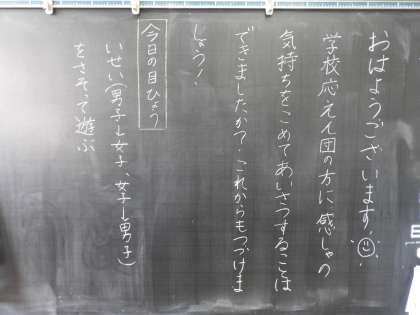 おはようございます!
学校応えん団の方に感しゃの
気持ちをこめてあいさつすることは
できましたか?これからもつづけま
しょう!
今日の目ひょう
いせい(男子→女子、女子→男子)
をさそって遊ぶ